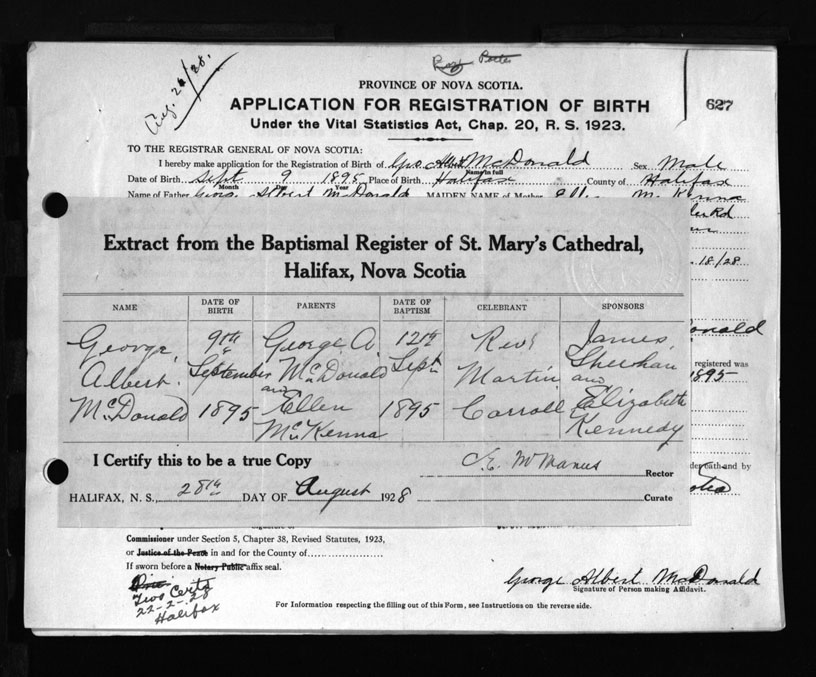 Aug. 28/28.
PROVINCE OF NOVA SCOTIA.
APPLICATION FOR REGISTRATION OF BIRTH
627
Under the Vital Statistics Act, Chap. 20, R. S. 1923.
TO THE REGISTRAR GENERAL OF NOVA SCOTIA:
I hereby make application for the Registration of Birth of Geo. Albert McDonald Sex Male
Name in full
Date of Birth Sept 9 1895 Place of Birth Halifax County of Halifax
Month Year
Name of Father George Albert McDonald MAIDEN NAME of Mother Ellen McKenna
Rd
18/28
Extract from the Baptismal Register of St. Mary's Cathedral,
Halifax, Nova Scotia
NAME DATE OF BIRTH PARENTS DATE OF BAPTISM CELEBRANT SPONSORS
George 9th George A. 12th Rev. James
Albert September McDonald Sept Martin Sheehan
and and
McDonald 1895 Ellen 1895 Carroll Elizabeth
McKenna Kennedy
onald
registered was
1895
I Certify this to be a true Copy C. E. McManus
Rector
der oath and by
HALIFAX, N. S., 28th DAY OF August 1928
Curate
Commissioner under Section 5, Chapter 38, Revised Statutes, 1923,
or Justice of the Peace in and for the County of
If sworn before a Notary Public affix seal.
George Albert McDonald
Signature of Person making Affidavit.
Two Certs
22-2-28
Halifax
For Information respecting the filling out of this Form, see Instructions on the reverse side.